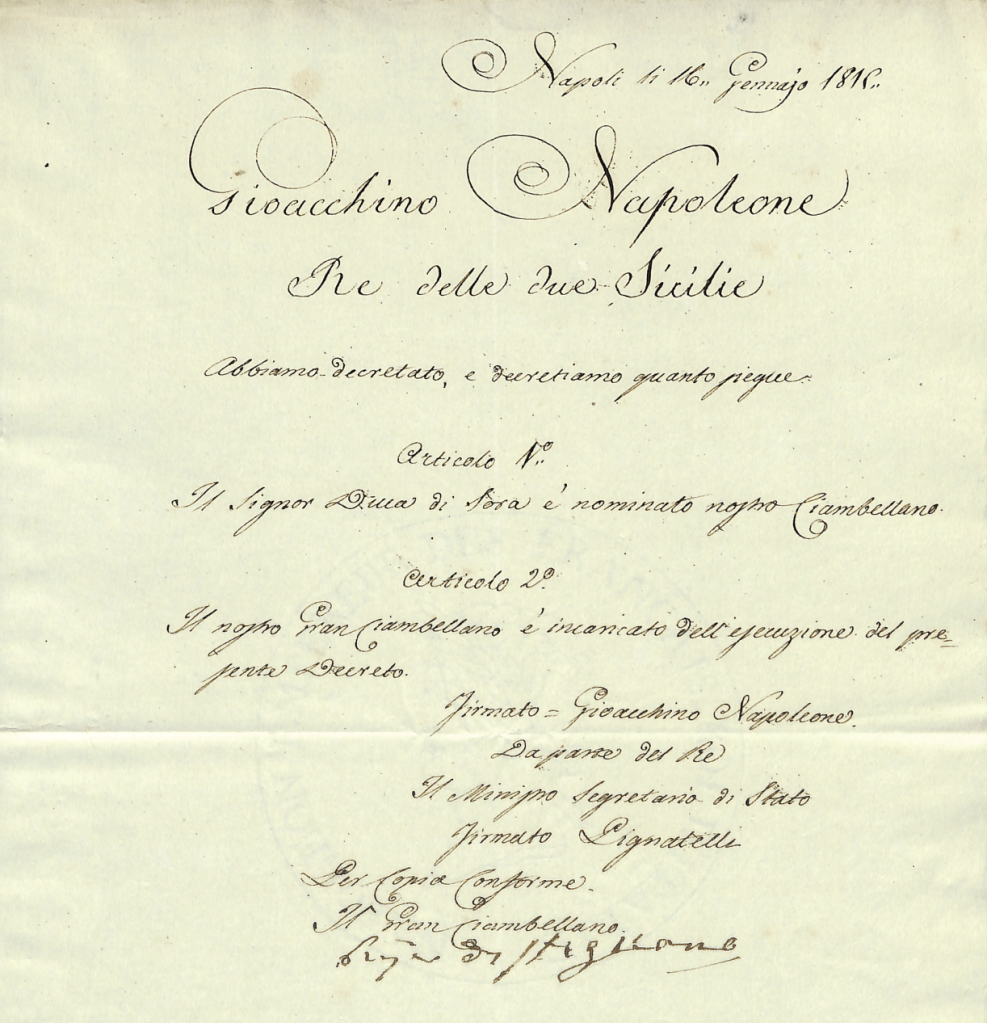 Napoli li 16,, Gennajo 1815,,
Gioacchino Napoleone
Re delle due Sicilie
Abbiamo decretato, e decretiamo quanto siegue.
Articolo 1°.
Il Signor Duca di Sora è nominato nostro Ciambellano.
Articolo 2°.
Il nostro Gran Ciambellano è incaricato dell'esecuzione del pre=
sente Decreto.
Firmato = Gioacchino Napoleone.
Da parte del Re
Il Ministro Segretario di Stato
Firmato Pignatelli
Per Copia Conforme.
Il Gran Ciambellano.
di Stigliano